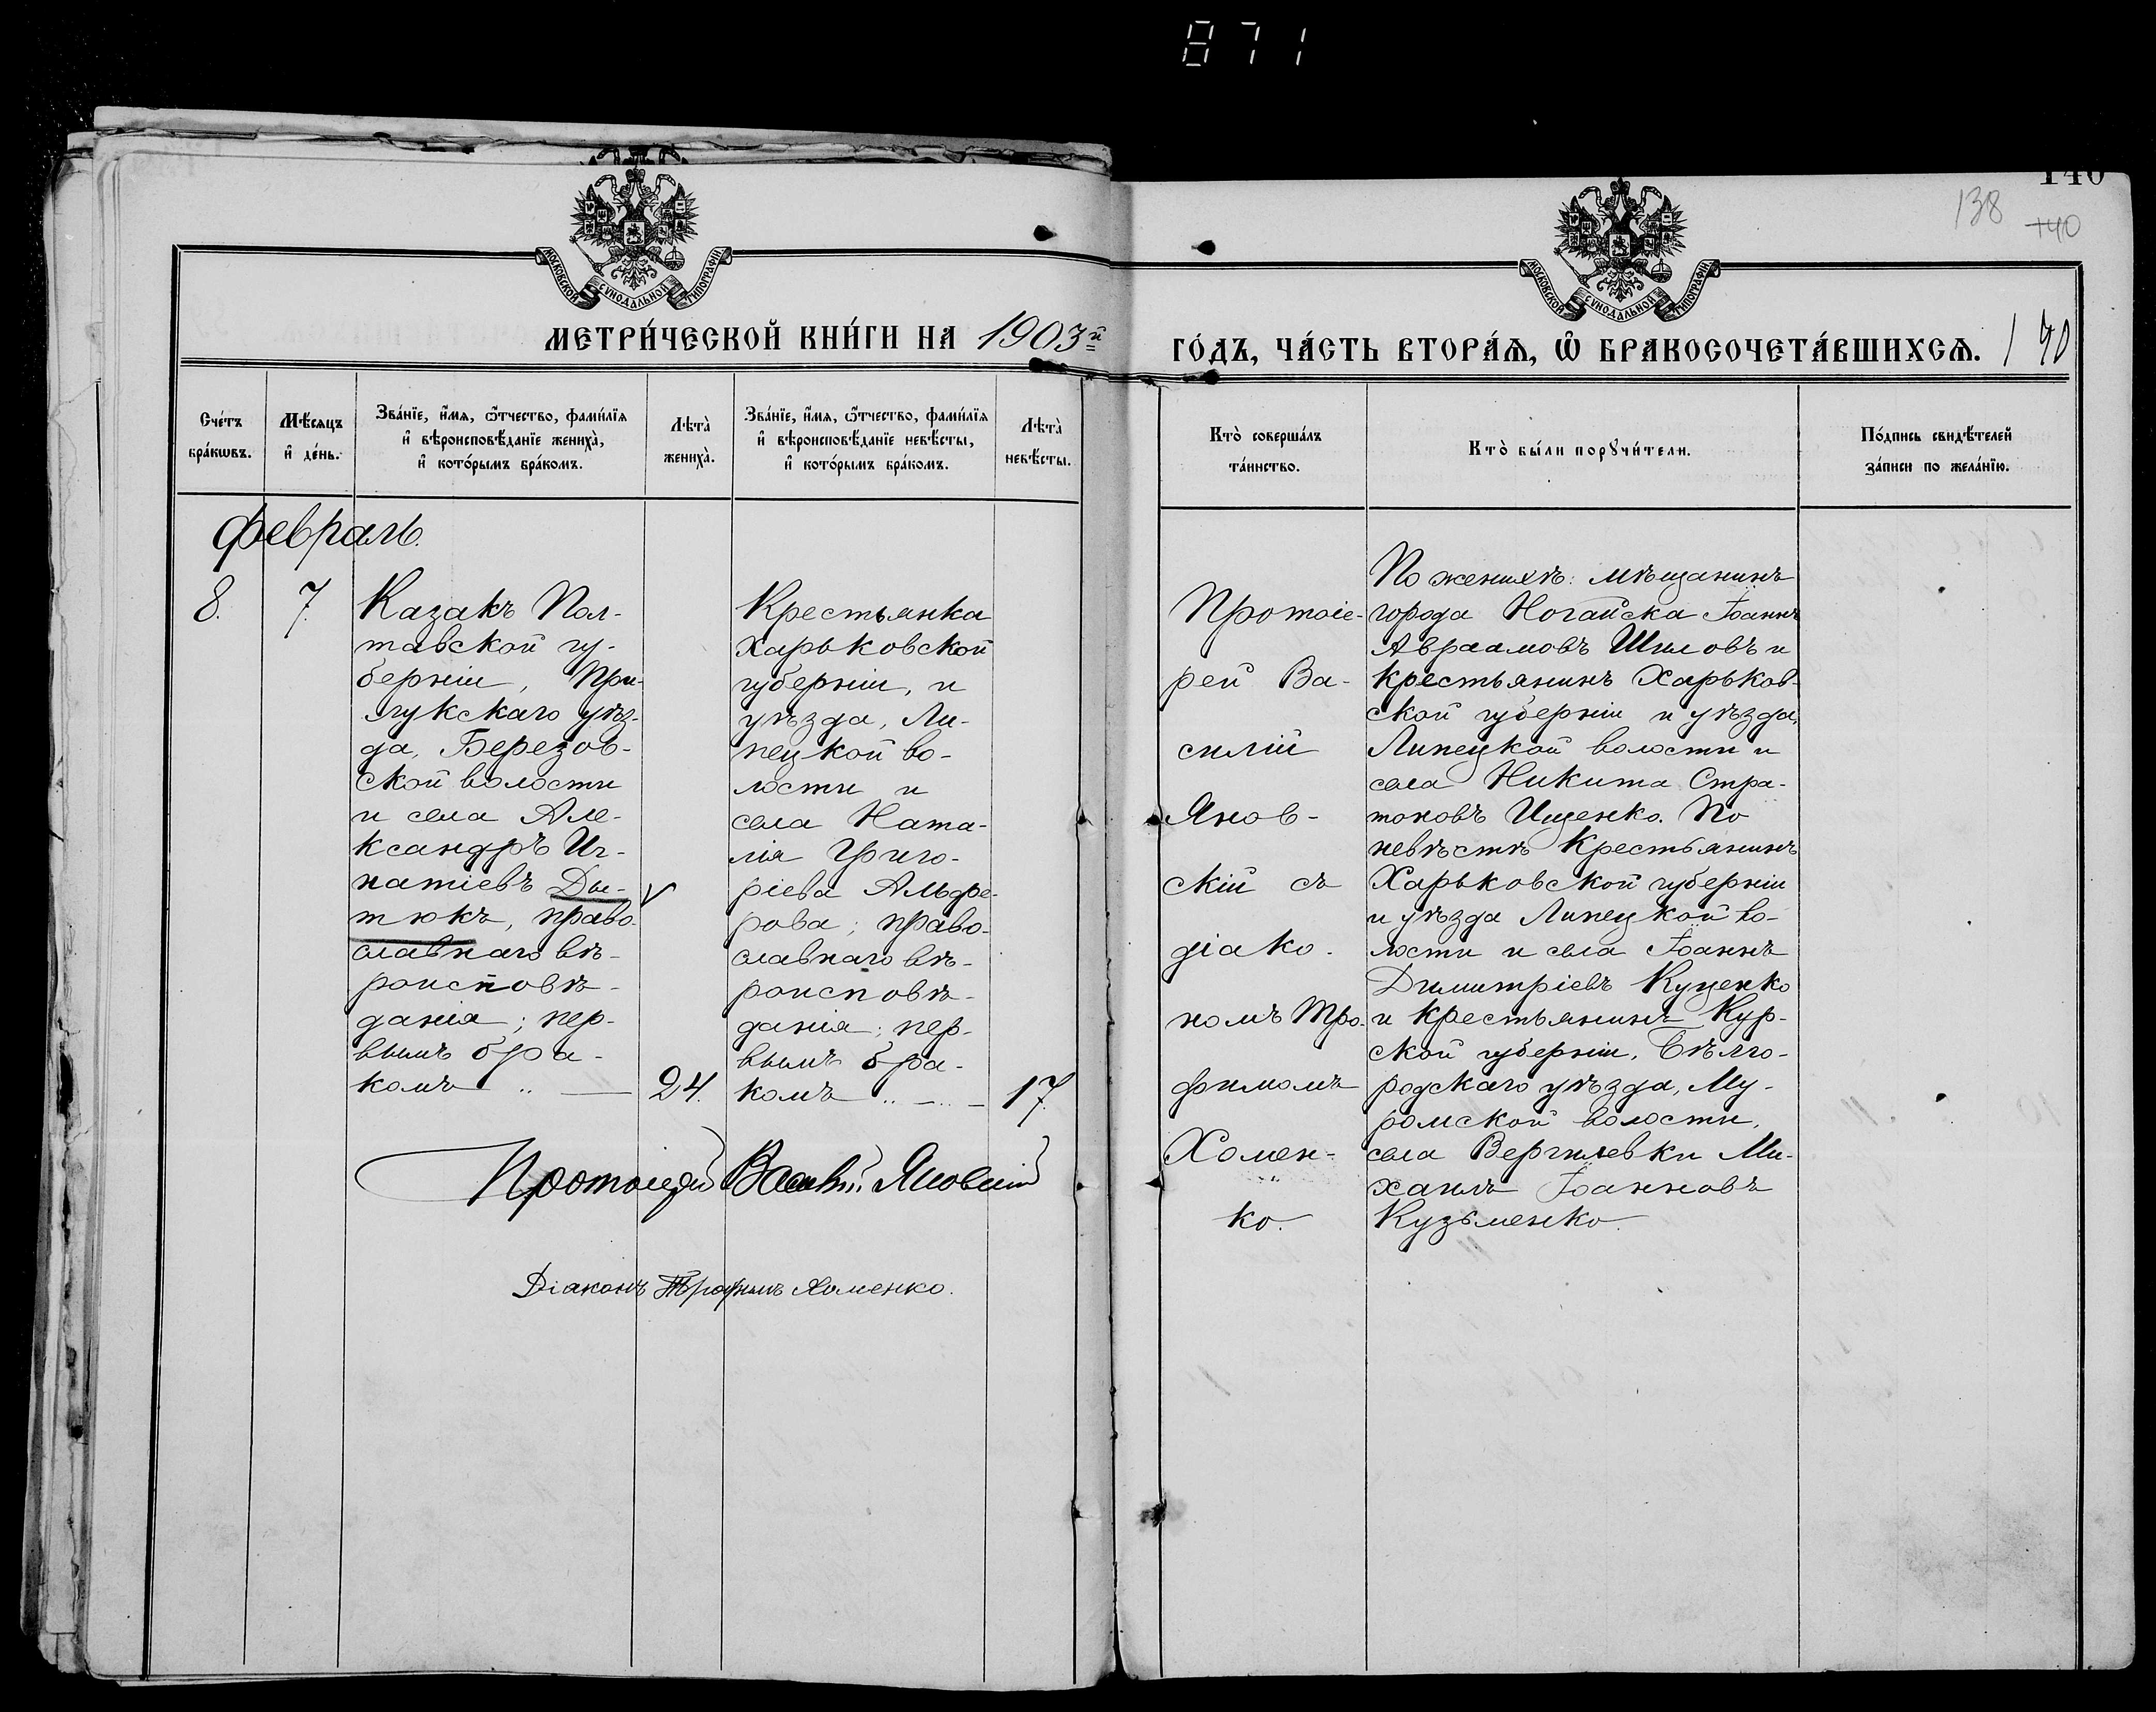 871
140
138
140
МОСКОВСКОЙ СѴНОДАЛЬНОЙ ТИПОГРАФІИ.
МОСКОВСКОЙ СѴНОДАЛЬНОЙ ТИПОГРАФІИ.
МЕТРИ́ЧЕСКОЙ КНИ́ГИ НА 1903й
ГО́ДЪ, ЧА́СТЬ ВТОРА́Ѧ, Ѡ҆ БРАКОСОЧЕТА́ВШИХСѦ. 140
Сче́тъ
бра́кѡвъ.
Мѣ́сяцъ
и҆ де́нь.
Зва́нїе, и҆́мя, ѻ҆́тчество, фами́лїя
и҆ вѣроисповѣ́данїе жениха̀,
и҆ кото́рымъ бра́комъ.
Лѣта̀
жениха̀.
Зва́нїе, и҆́мя, ѻ҆́тчество, фами́лїя
и҆ вѣроисповѣ́данїе невѣ́сты,
и҆ кото́рымъ бра́комъ.
Лѣта̀
невѣ́сты.
Кто̀ соверша́лъ
та́инство.
Кто̀ бы́ли порꙋчи́тели.
По́дпись свидѣ́телей
за́писи по жела́нїю.
Февраль.
8.
7.
Казакъ Пол-
тавской гу-
берніи, При-
лукскаго уѣз-
да, Березов-
ской волости
и села Але-
ксандръ Иг-
натіевъ Ды-
тюкъ, право-
славнаго вѣ-
роисповѣ-
данія; пер-
вымъ бра-
комъ
24.
Крестьянка
Харьковской
губерніи, и
уѣзда, Ли-
пецкой во-
лости и
села Ната-
лія Григо-
ріева Альфе-
рова; право-
славнаго вѣ-
роисповѣ-
данія; пер-
вымъ бра-
комъ
17.
Протоіерей Василій Яновскій
Діаконъ Трофимъ Хоменко.
Протоіе-
рей Ва-
силій
Янов-
скій съ
діако-
номъ Тро-
фимомъ
Хомен-
ко.
По женихѣ: мѣщанинъ
города Ногайска Іоаннъ
Авраамовъ Шиловъ и
крестьянинъ Харьков-
ской губерніи и уѣзда,
Липецкой волости и
села Никита Стра-
тоновъ Ищенко. По
невѣстѣ крестьянинъ
Харьковской губерніи
и уѣзда Липецкой во-
лости и села Іоаннъ
Димитріевъ Куценко
и крестьянинъ Кур-
ской губерніи, Бѣлго-
родскаго уѣзда, Му-
ромской волости,
села Вергилевки Ми-
хаилъ Іоанновъ
Кузьменко.